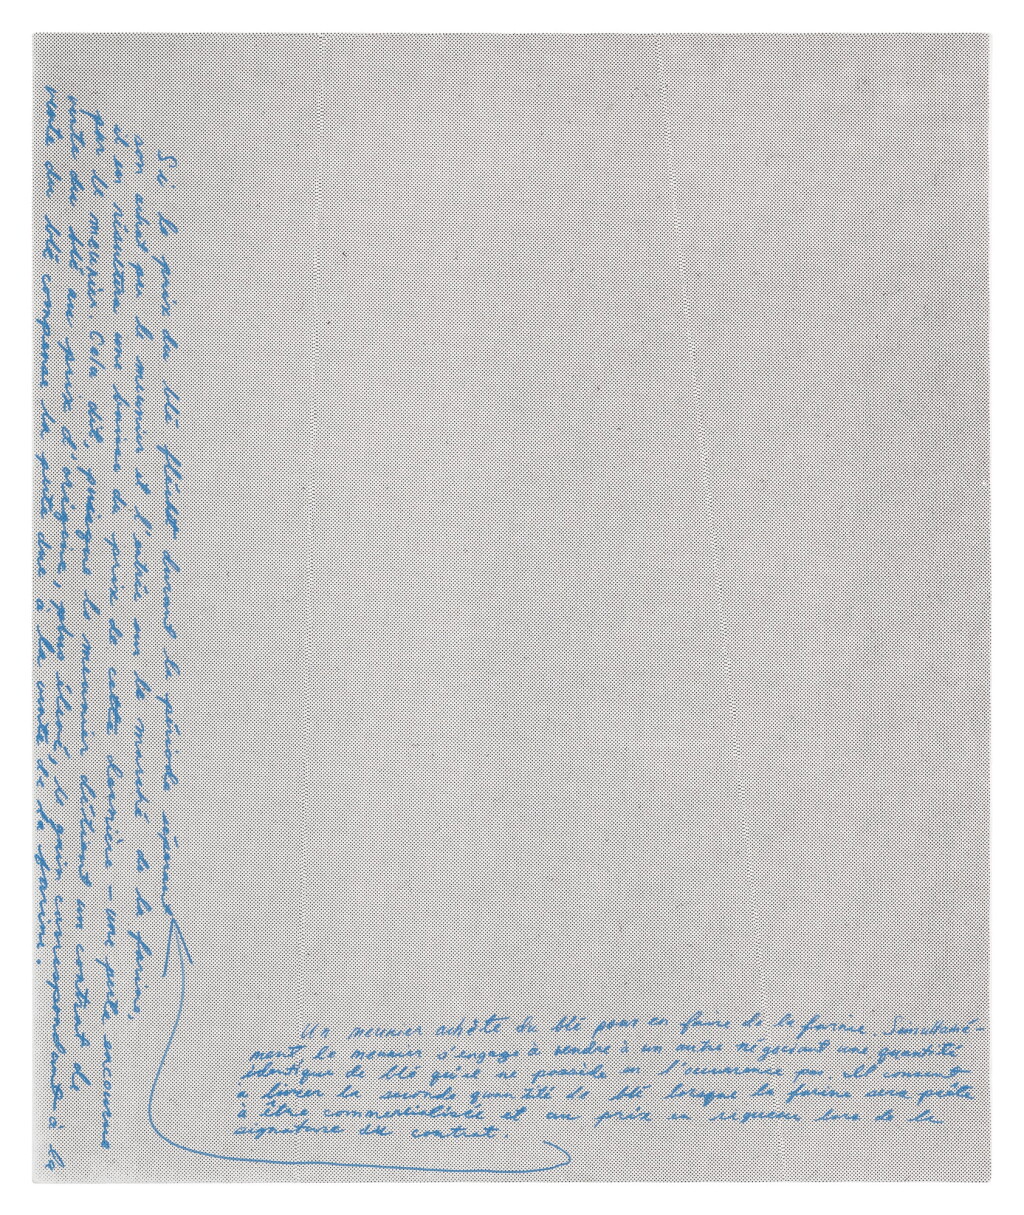 Un meunier achète du blé pour en faire de la farine. Simultané-
ment, le meunier s'engage à vendre à un autre négociant une quantité
identique de blé qu'il ne possède en l'occurence pas. Il consent
à livrer la seconde quantité de blé lorsque la farine sera prête
à être commercialisée et au prix en vigueur lors de la
signature du contrat.
Si le prix du blé fléchit durant la période séparant
son achat par le meunier et l'entrée sur le marché de la farine,
il en résultera une baisse du prix de cette dernière – une perte encourue
par le meunier. Cela dit, puisque le meunier détient un contrat de
vente du blé au prix d'origine, plus élevé, le gain correspondant à la
vente du blé compense la perte due à la vente de la farine.